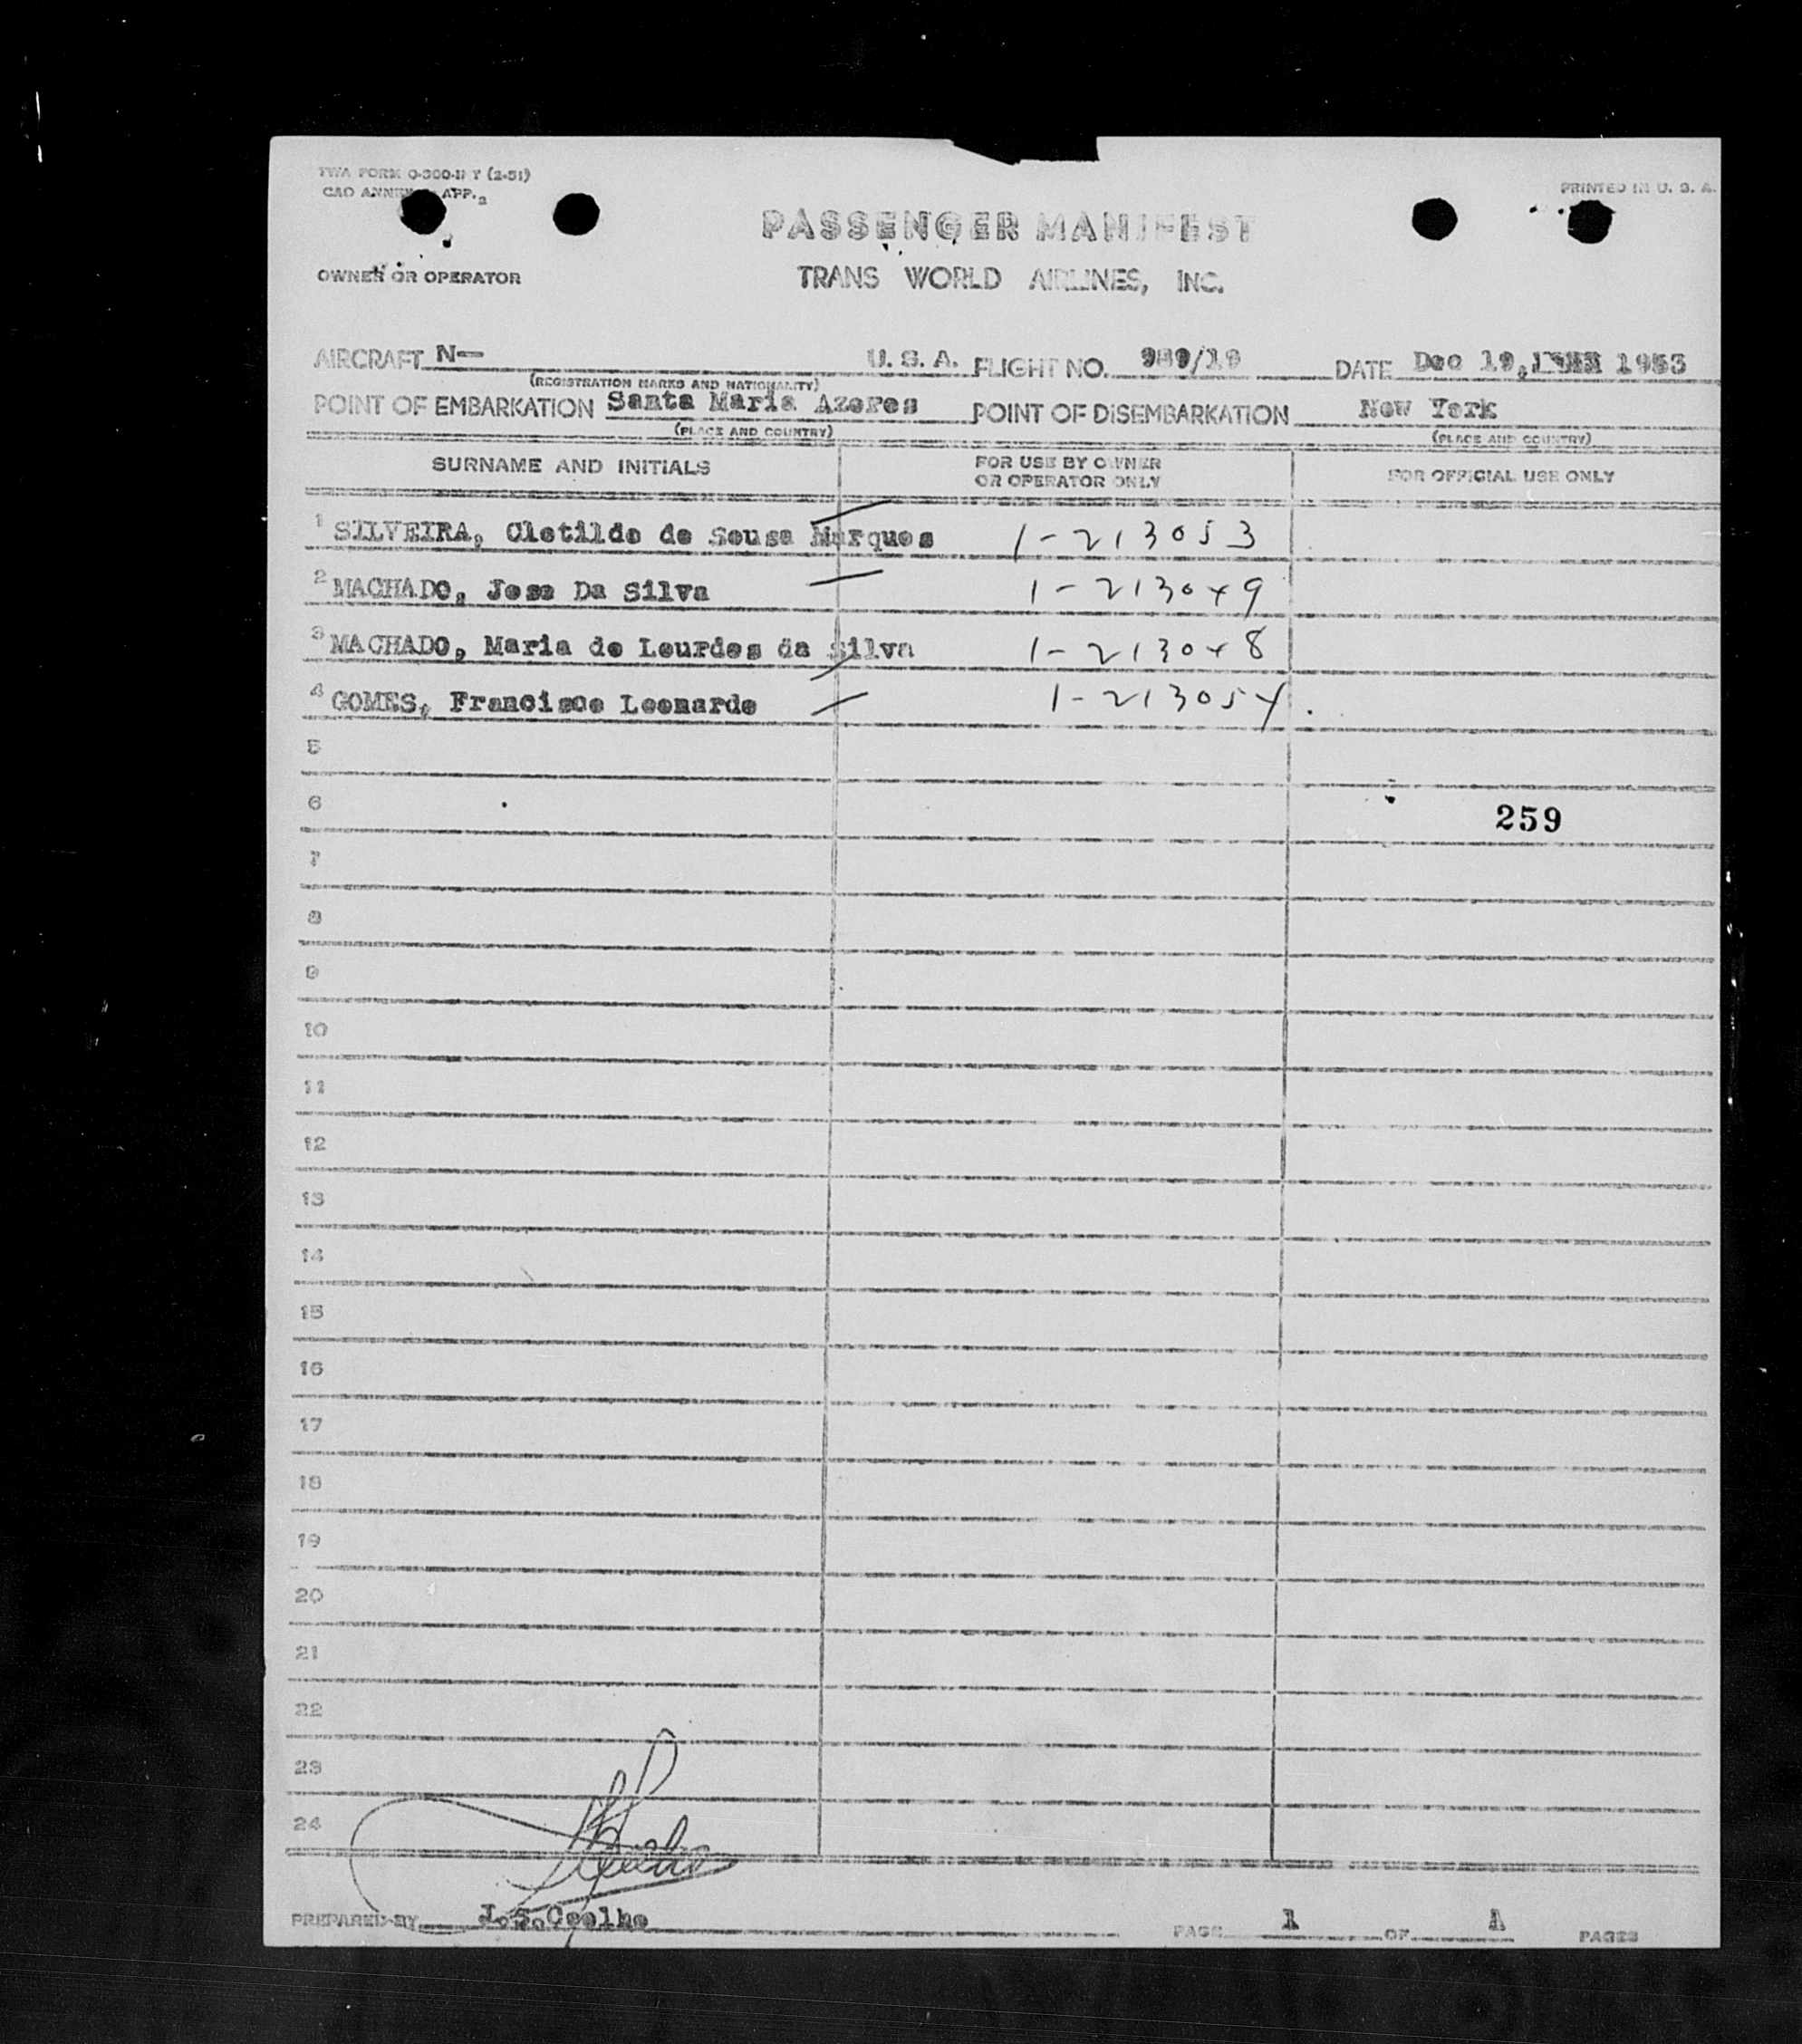 TWA FORM O-300-N Y (2-51)
PRINTED IN U. S. A.
PASSENGER MANIFEST
OWNER OR OPERATOR
TRANS WORLD AIRLINES, INC.
AIRCRAFT N— U. S. A. FLIGHT NO. 989/19 DATE Dec 19, 1953
(REGISTRATION MARKS AND NATIONALITY)
POINT OF EMBARKATION Santa Maria Azores POINT OF DISEMBARKATION New York
(PLACE AND COUNTRY) (PLACE AND COUNTRY)
SURNAME AND INITIALS FOR USE BY OWNER OR OPERATOR ONLY FOR OFFICIAL USE ONLY
1 SILVEIRA, Clotilde de Sousa Marques 1-213053
2 MACHADO, Jose Da Silva 1-213049
3 MACHADO, Maria de Lourdes da Silva 1-213048
4 GOMES, Francisco Leonardo 1-213054
5
6 259
7
8
9
10
11
12
13
14
15
16
17
18
19
20
21
22
23
24
PREPARED BY J.S.Coelho PAGE 1 OF 1 PAGES